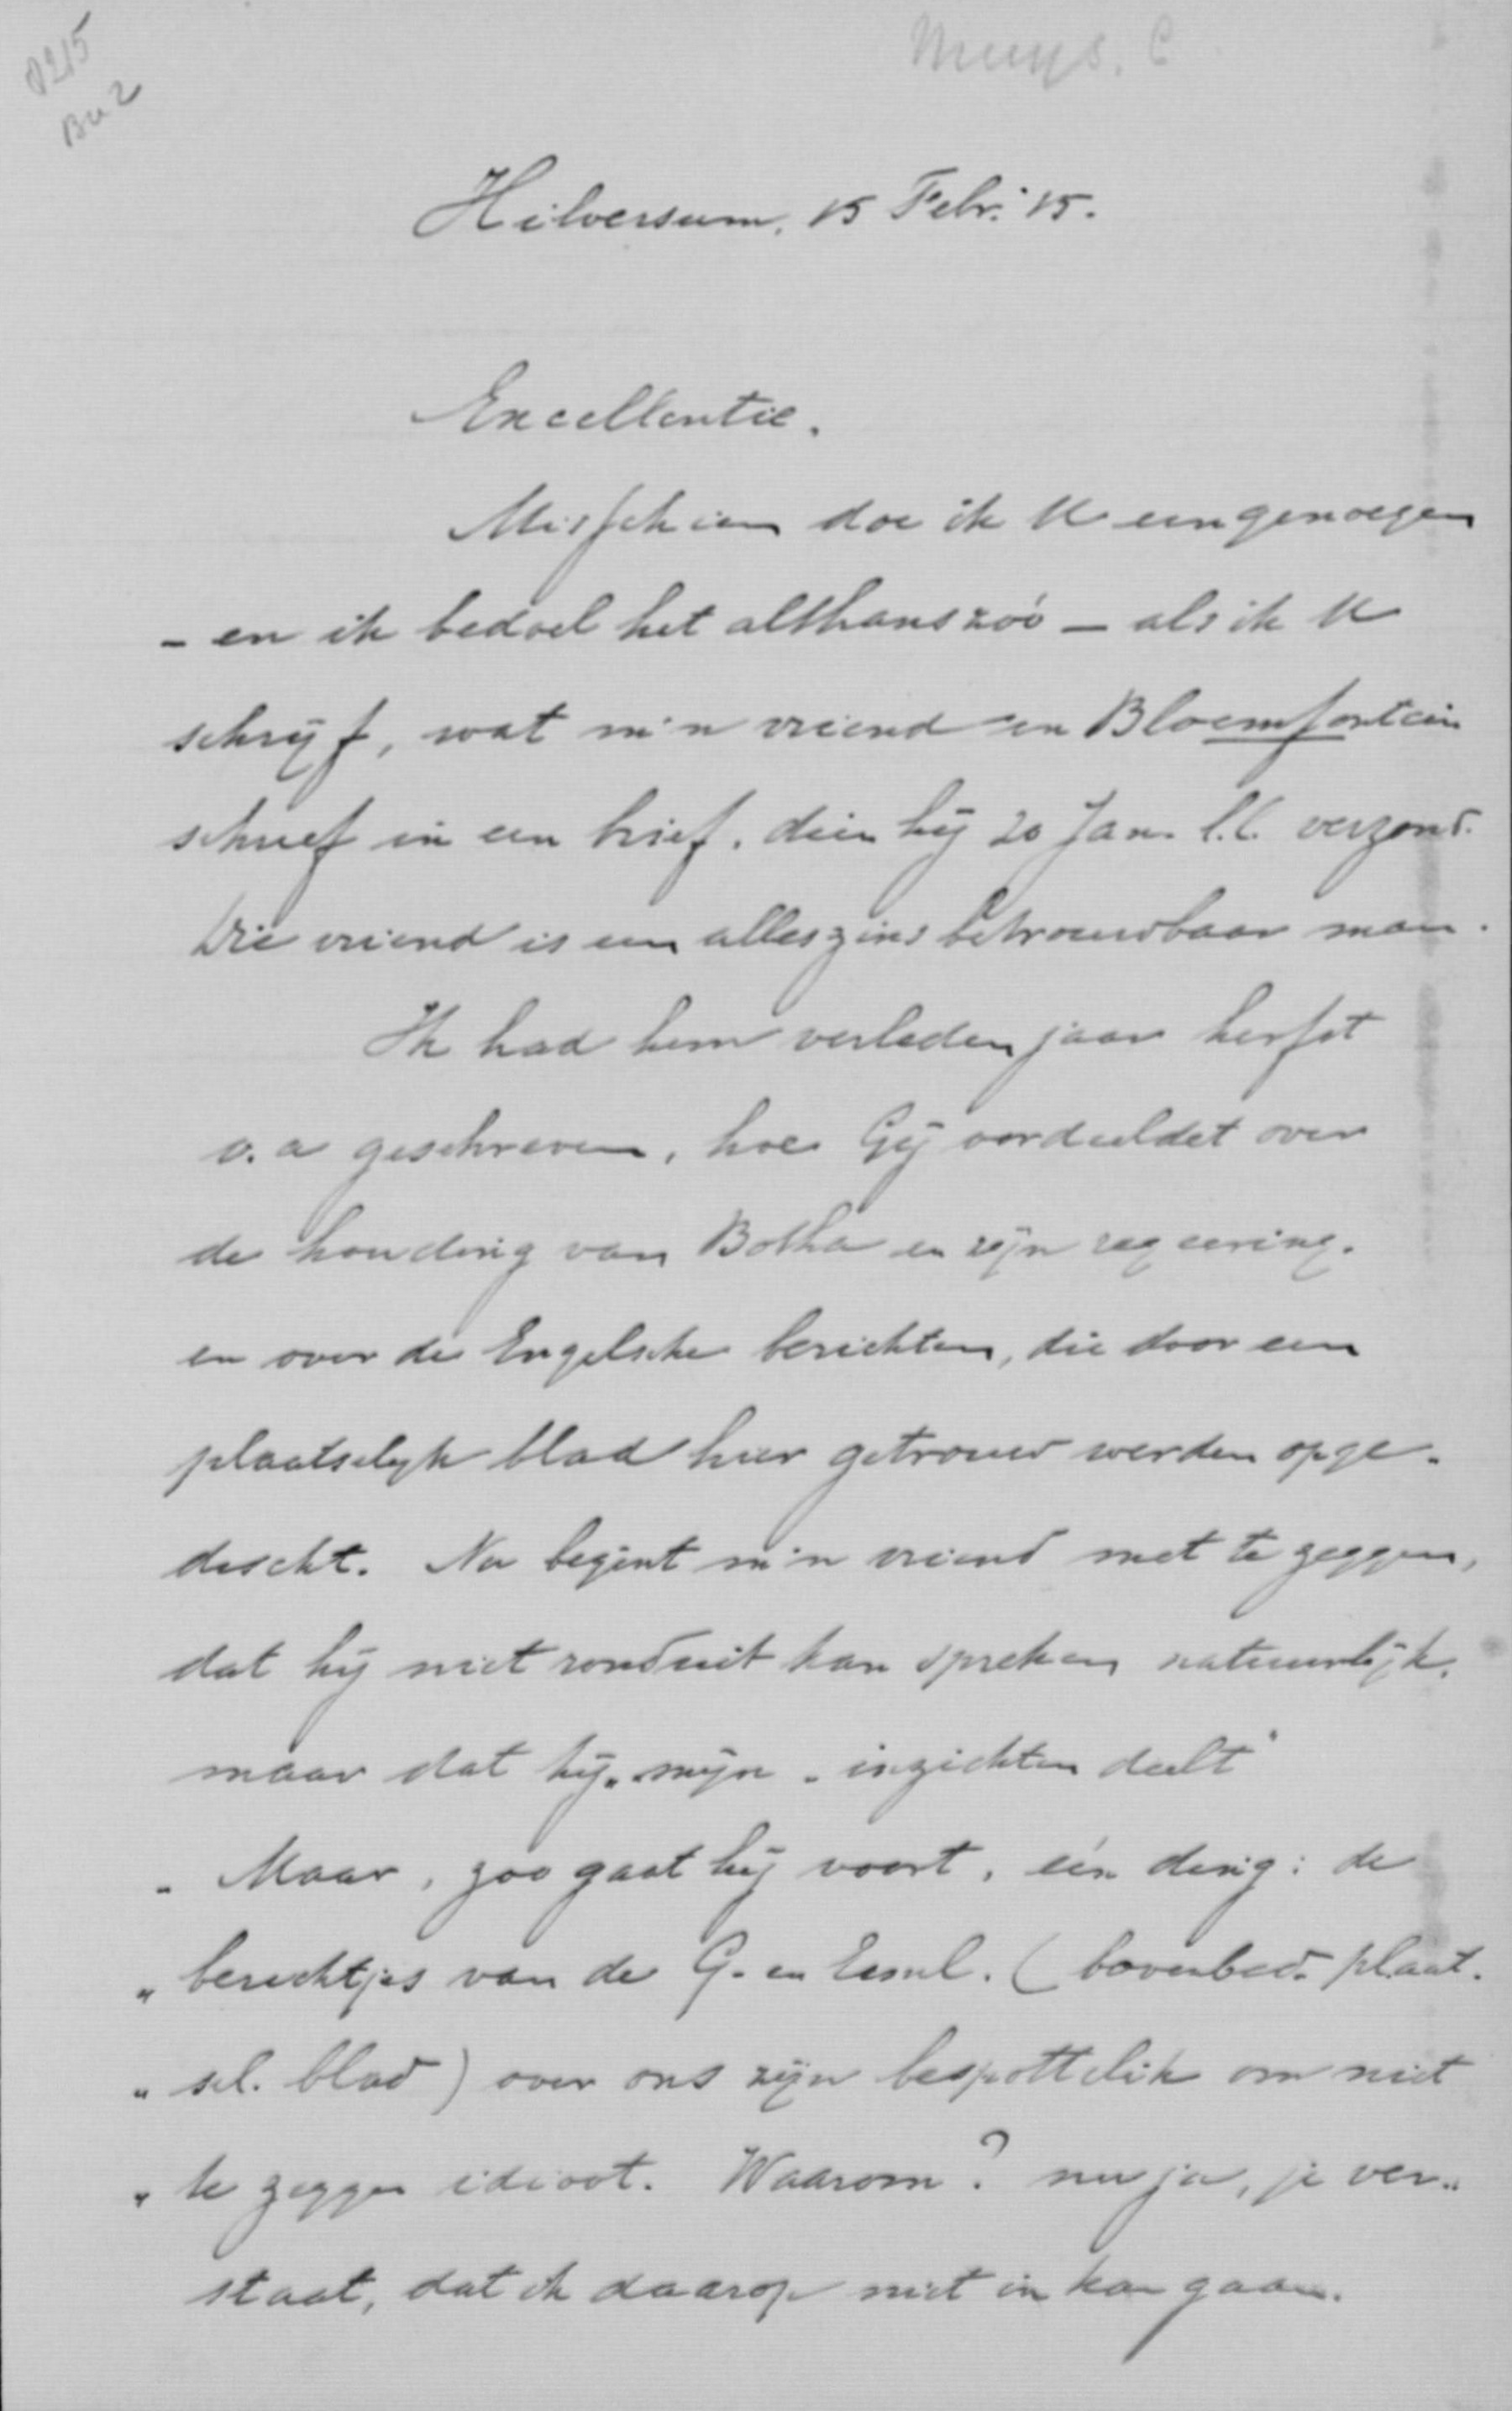 0215
Bu 2
Muys. C
Hilversum, 15 Febr. '15.
Excellentie.
Misschien doe ik U een genoegen
- en ik bedoel het althans zóó - als ik U
schrijf, wat m'n vriend en Bloemfontein
schreef in een brief, dien hij 20 Jan. l.l. verzond.
Die vriend is een alleszins betrouwbaar man.
Ik had hem verleden jaar herfst
o.a geschreven, hoe Gij oordeeldet over
de houding van Botha en zijn regeering.
en over de Engelsche berichten, die door een
plaatselijk blad hier getrouw werden opge-
discht. Nu begint m'n vriend met te zeggen,
dat hij niet ronduit kan spreken natuurlijk.
maar dat hij „mijn „inzichten deelt"
„ Maar, zoo gaat hij voort, één ding: de
„ berichtjes van de G. en Eeml. (bovenbed. plaat.
„ sel. blad) over ons zijn bespottelik om niet
„ te zeggen idioot. Waarom? nu ja, je ver„
staat, dat ik daarop niet in kan gaan.